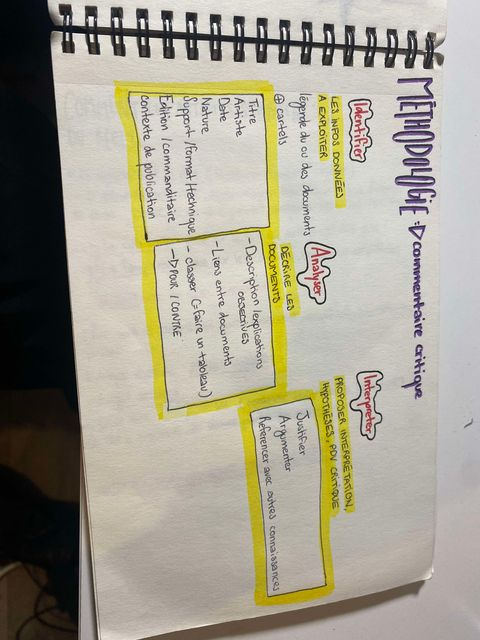 MÉTHODOLOGIE =D commentaire critique
Identifier
LES INFOS DONNÉES
A EXPLOITER
légende du ou des documents
⊕ cartels
Titre
Artiste
Date
Nature
Support/format/technique
Edition/commanditaire
contexte de publication
Analyser
DÉCRIRE LES
DOCUMENTS
- Description/explications
OBJECTIVES
- Liens entre documents
- classer (=faire un tableau)
-D POUR / CONTRE
Interpréter
PROPOSER INTERPRÉTATION,
HYPOTHÈSES, PDV CRITIQUE
Justifier
Argumenter
Référencer avec autres connaissances